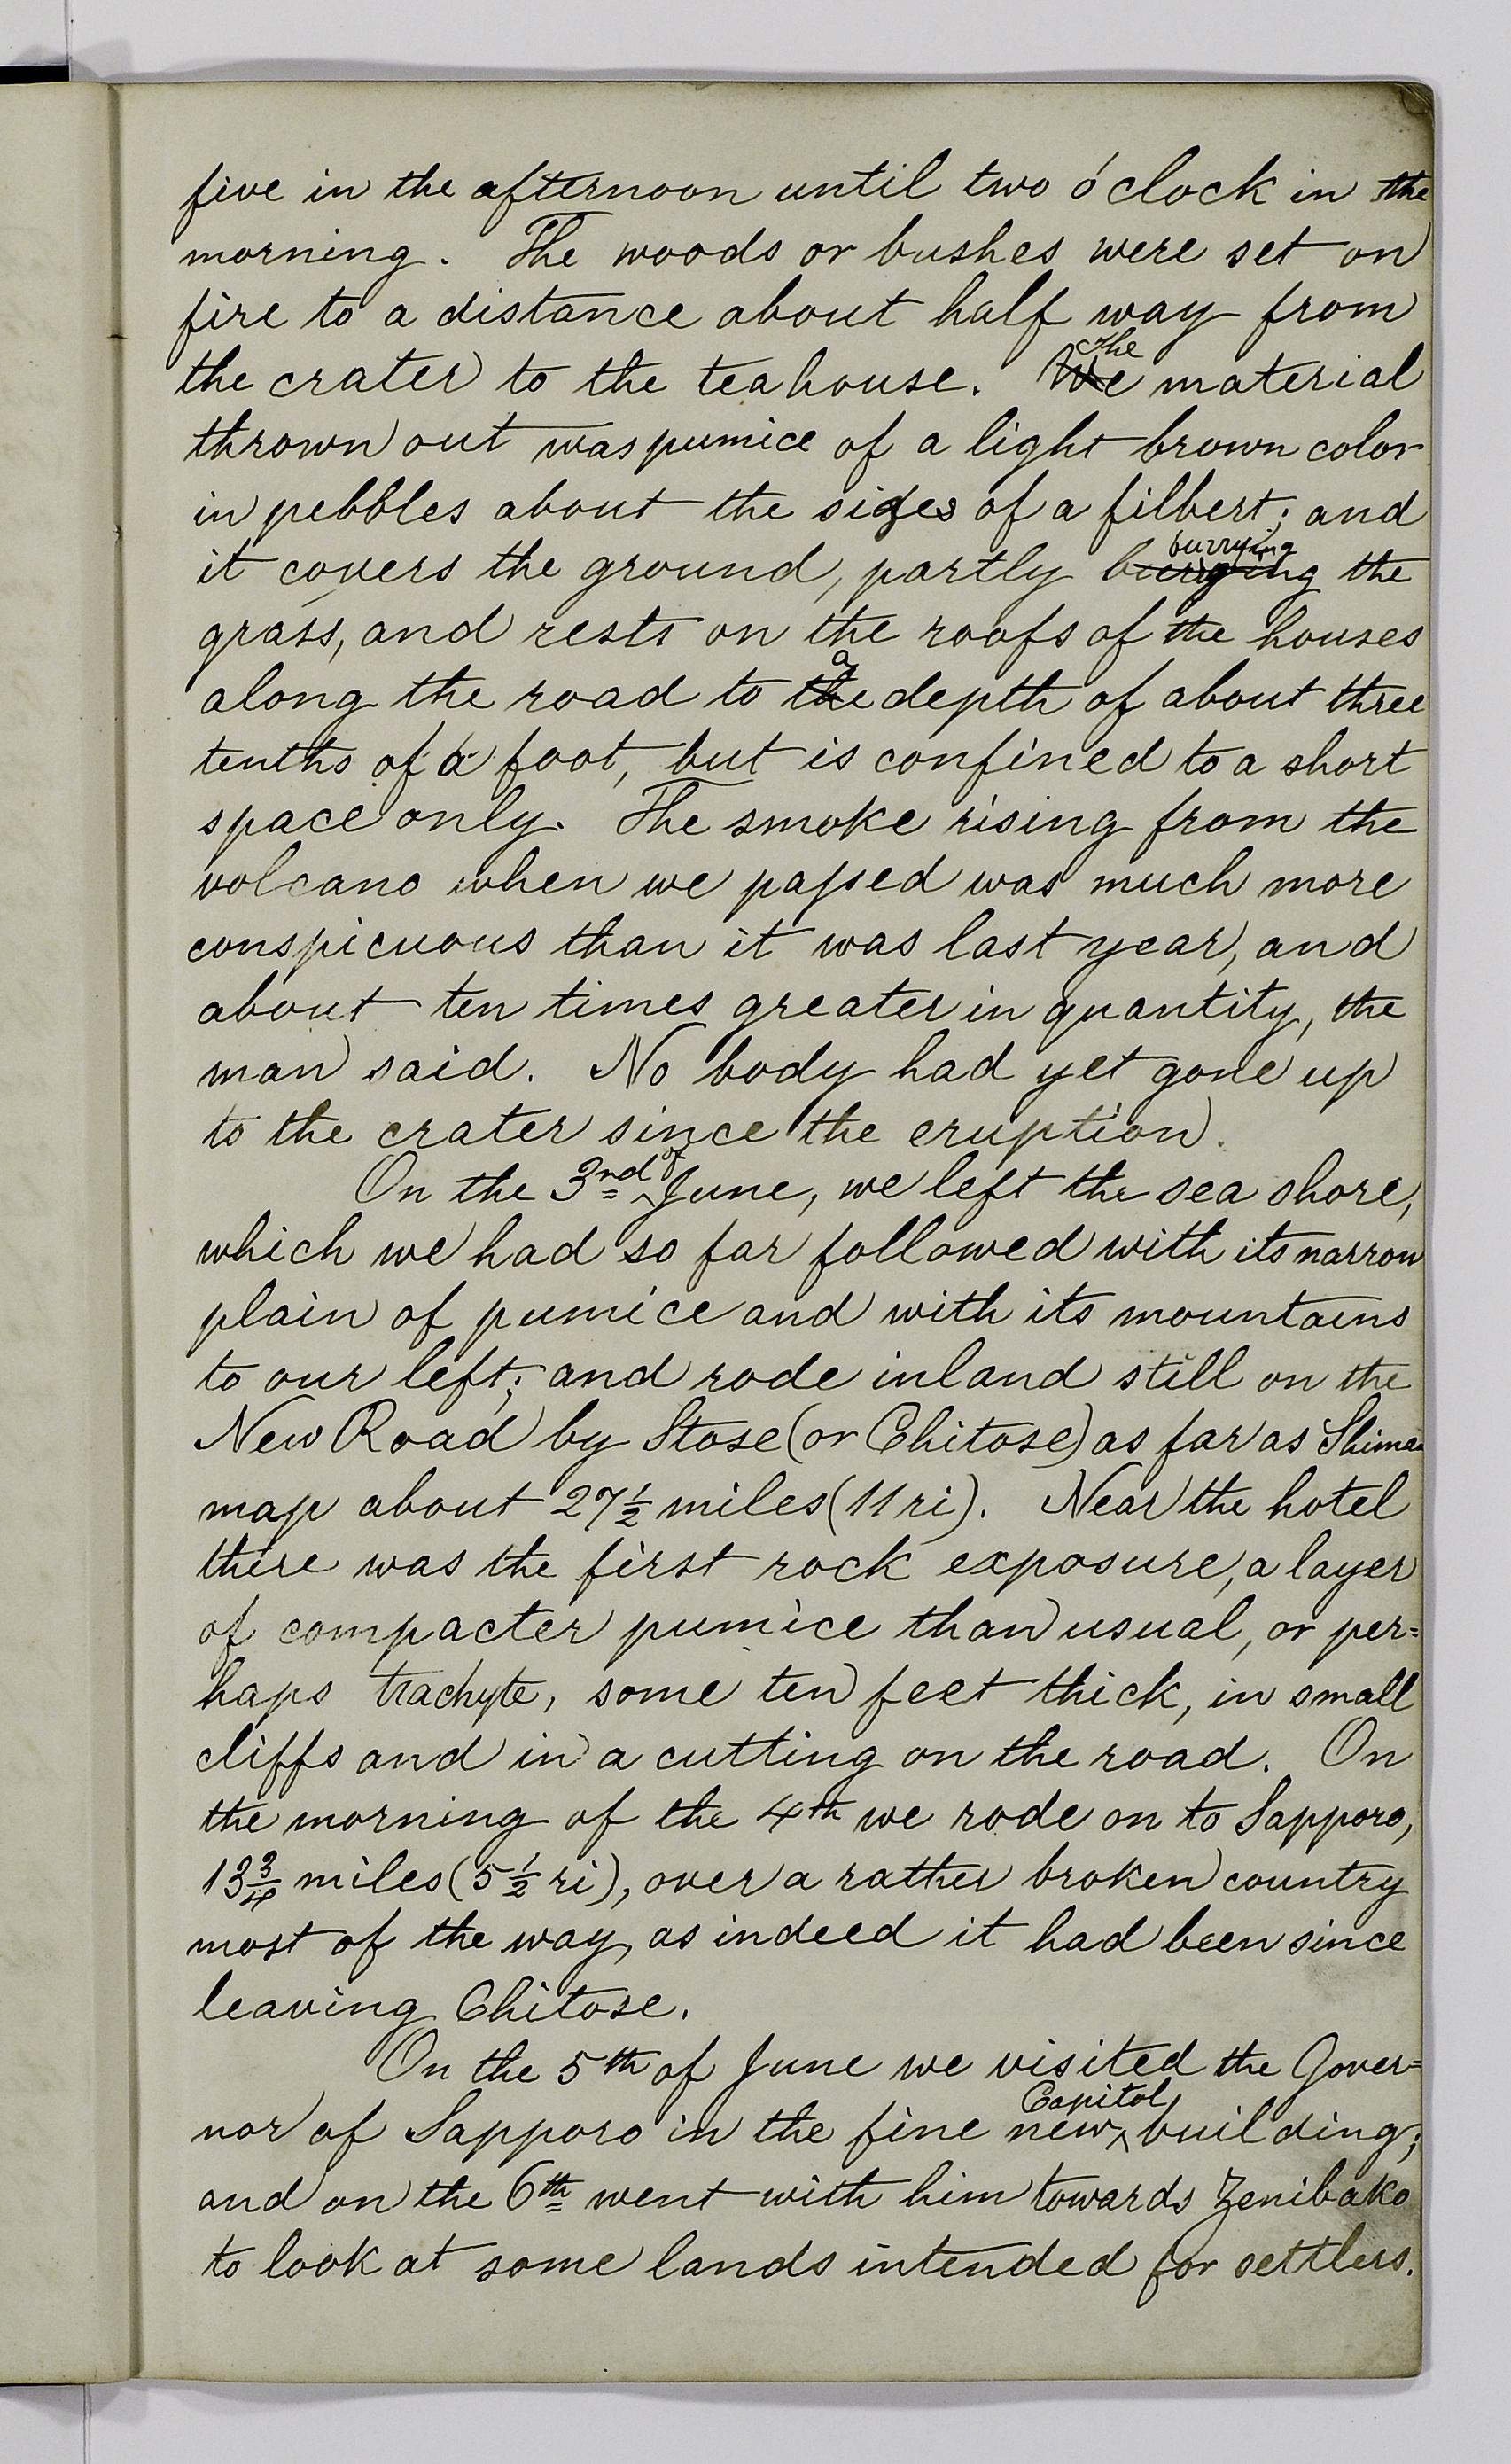 five in the afternoon until two o'clock in the
morning. The woods or bushes were set on
fire to a distance about half way from
the crater to the teahouse. ~~We~~ The material
thrown out was pumice of a light brown color
in pebbles about the sizes of a filbert; and
it covers the ground, partly burrying the
grass, and rests on the roofs of the houses
along the road to ~~the~~ a depth of about three
tenths of a foot, but is confined to a short
space only. The smoke rising from the
volcano when we passed was much more
conspicuous than it was last year, and
about ten times greater in quantity, the
man said. No body had yet gone up
to the crater since the eruption.
On the 3rd of June, we left the sea shore,
which we had so far followed with its narrow
plain of pumice and with its mountains
to our left; and rode inland still on the
New Road by Stose (or Chitose) as far as Shima-
map about 27½ miles (11 ri). Near the hotel
there was the first rock exposure, a layer
of compacter pumice than usual, or per=
haps trachyte, some ten feet thick, in small
cliffs and in a cutting on the road. On
the morning of the 4th we rode on to Sapporo,
13¾ miles (5½ ri), over a rather broken country
most of the way, as indeed it had been since
leaving Chitose.
On the 5th of June we visited the Gover=
nor of Sapporo in the fine new Capitol building;
and on the 6th went with him towards Zenibako
to look at some lands intended for settlers.